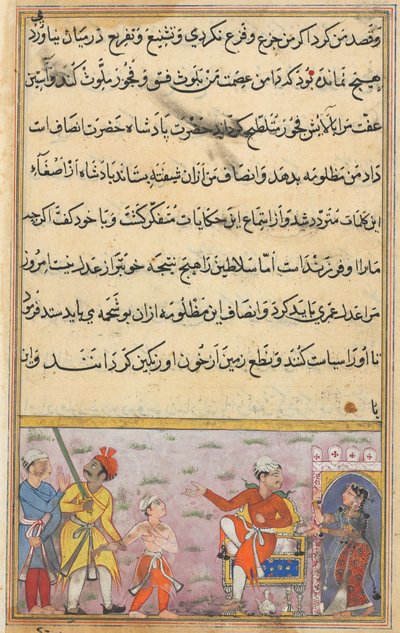 وقصد من کرد اکر من جزع و فزع نکردی و تشنیع و تفریح در میان نیاورد
هیچ نمانده بود که دامن عصمت من بلوث فسق و فجور ملوث کند و آستین
عفت مرا بالایش فجور متلطخ کرداند حضرت پادشاه حضرت انصاف است
داد من مظلومه بدهد و انصاف من ازان بستاند پادشاه از اصغاء
این کلمات متردد شد و از استماع این حکایات متفکر کشت و با خود کفت اکرچه
مارا او فرزند است اما سلاطین را هیچ نتیجه خوبتر از عدل نیست امروز
مرا عدل عمری باید کرد و انصاف این مظلومه ازان می باید ستد فرمود
تا او را سیاست کنند و نطع زمین از خون او رنکین کردانند و این
با